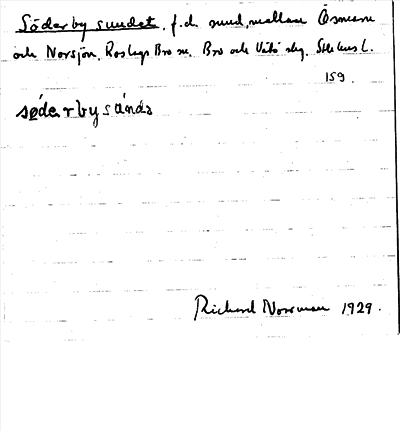 Söderby sundet, f.d. sund, mellan Ösmaren
och Norsjön, Roslags Bro sn. Bro och Vätö skg. Sthlms l.
159.
sødərbysúndə
Richard Norrman 1929.